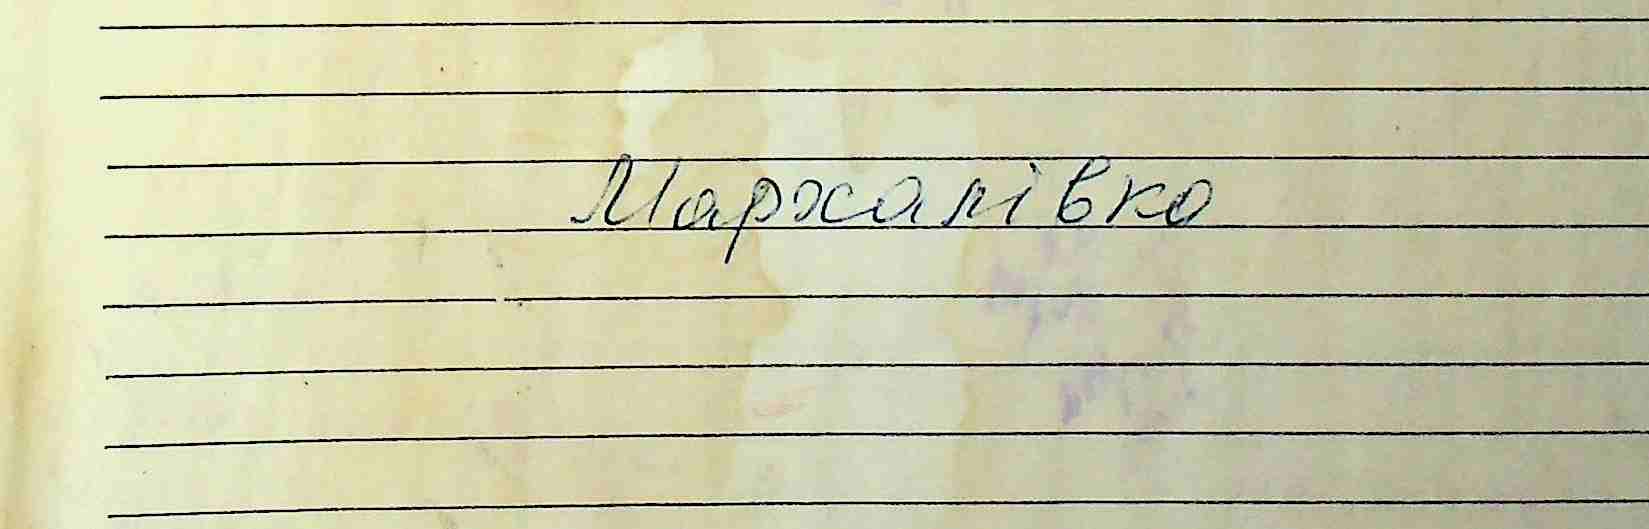 Мархалівка